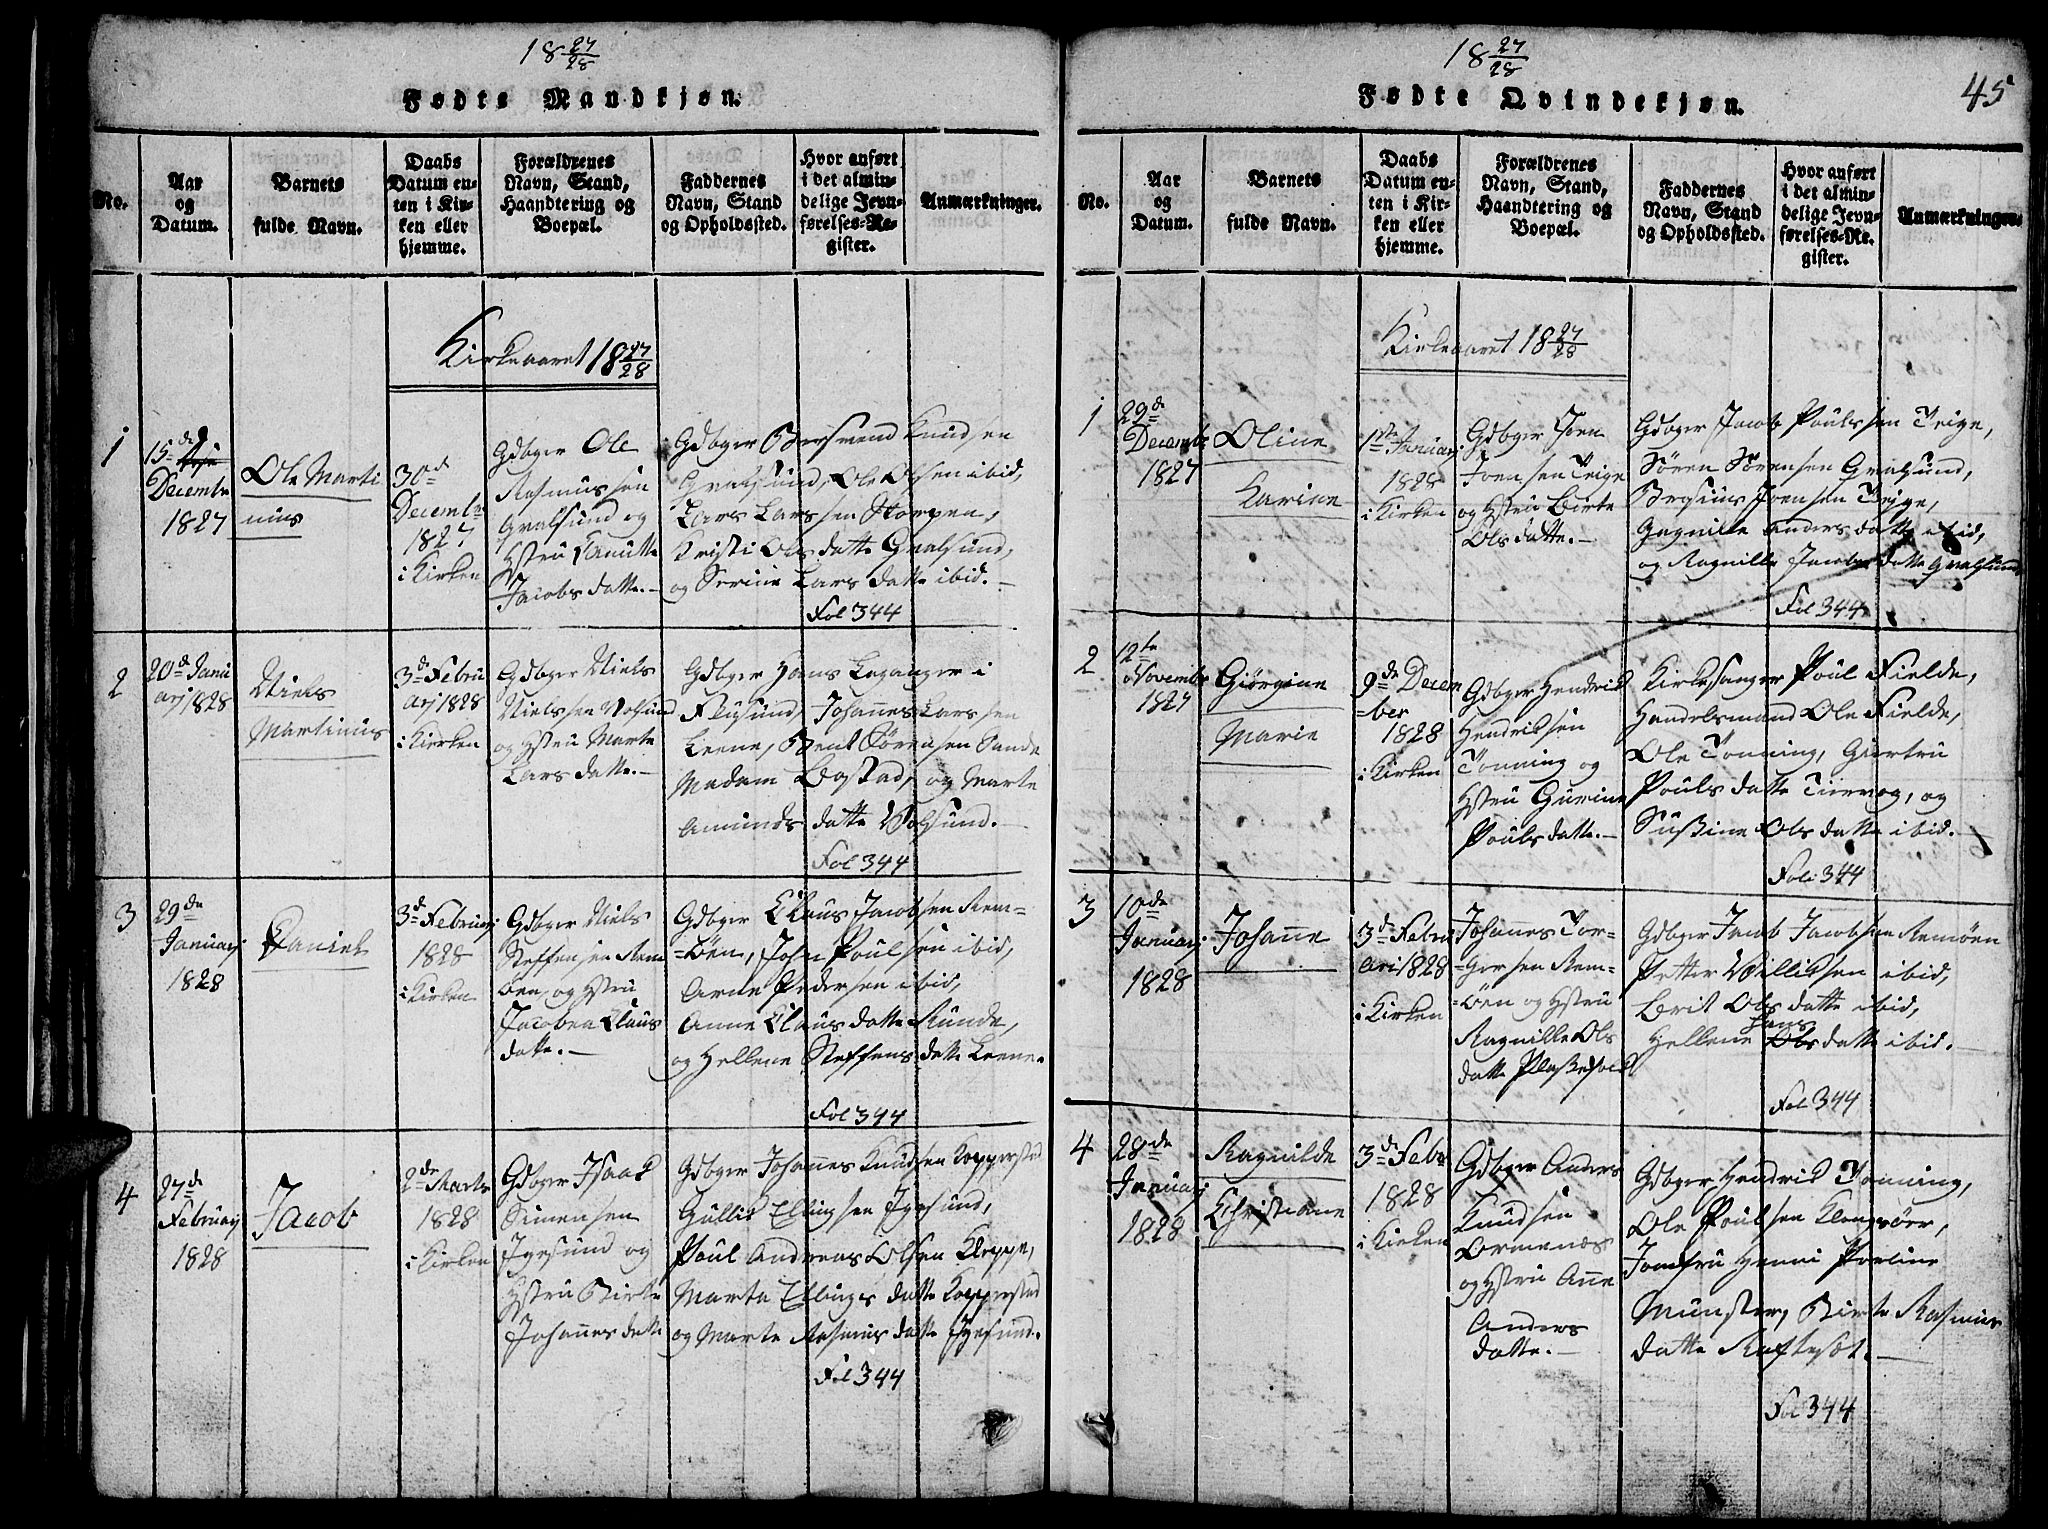 18 27/28
Fødte Mandkjøn.
No.
Aar
og
Datum.
Barnets
fulde Navn.
Daabs
Datum en-
ten i Kir-
ken eller
hjemme.
Forældrenes
Navn, Stand,
Haandtering og
Boepæl.
Faddernes
Navn, Stand
og Opholdssted.
Hvor anført
i det almin-
delige Jevn-
førelses-Re-
gister.
Anmærkninger.
Kirkeaaret 18 27/28
1
15de
Decembr
1827
Ole Marti
nius
30d
Decembr
1827
i Kirken
Gdbger Ole
Rasmussen
Qvalsund og
Hstru
Jacobs datte.-
Gdbger Knudsen
Qvalsund, Ole Olsen ibid,
Lars Larssen Storgen,
Kristi Ols datte Qvalsund,
og Serine Lars datte ibid.-
Fol 344
2
20d Janu
arj 1828
Niels
Martinius
3d Febru
arj 1828
i Kirken
Gdbger Niels
Nielssen Volsund
og Hstru Marte
Lars datte.-
Gdbger Hans Leganger i
Flusund, Johannes Larssen
Leene, Bent Sørensen Sande
Madam Bostad, og Marte
Amunds datte Volsund.-
Fol 344
3
29de
Januarj
1828
Daniel
3d Februarj
1828
i Kirken
Gdbger Niels
Steffensen Rem
öen, og Hstru
Jacobea Claus
datte.-
Gdbger Claus Jacobsen Rem=
=öen, John Poulsen ibid,
Arne Pedersen ibid,
Anne Claus datte Runde,
og Hellene Steffens datte Leene.
Fol 344
4
27d
Februarj
1828
Jacob
2de Marts
1828
i Kirken
Gdbger Isaak
Simensen
Igesund og
Hstru Birte
Johannes datte
Gdbger Johannes Knudsen Koppersted
Gullik Ellingsen Igesund,
Poul Andreas Olsen Kleppe,
Marta Ellings datte Kopperstad
og Marte Rasmus datte Igesund.
Fol 344
18 27/28
45
Fødte Qvindekjøn.
No.
Aar
og
Datum.
Barnets
fulde Navn.
Daabs
Datum en-
ten i Kir-
ken eller
hjemme.
Forældrenes
Navn, Stand,
Haandtering og
Boepæl.
Faddernes
Navn, Stand
og Opholdssted.
Hvor anført
i det almin-
delige Jevn-
førelses-Re-
gister.
Anmærkninger.
Kirkeaaret 18 27/28
1
29de
Decembr
1827
Oline
Karine
1ste Januarj
1828
i Kirken
Gdbger Joen
Joensen Teige
og Hstru Birte
Ols datte.-
Gdbger Jacob Poulssen Teige,
Søren Sørensen Qvalsund,
Joensen Teige,
Anders datte ibid,
og Ragnille Jacobs datte Qvalsund
Fol 344
2
12te
Novembr
1827
Giørgine
Marie
9de Decem
=ber
1828
i Kirken
Gdbger Hendrik
Hendriksen
Tonning og
Hstru Gurine
Pouls datte.-
Kirkesanger Poul Fielde,
Handelsmand Ole Fielde,
Ole Tonning, Giertru
Pouls datte, og
Sussine Ols datte ibid.
Fol: 344
3
10de
Januarj
1828
Johanne
3d Febru
arj 1828
i Kirken
Johannes Tor-
gersen Rem-
=öen og Hstru
Ragnille Ols
datte
Gdbger Jacob Jacobsen Remöen
Petter Villiksen ibid,
Brit Ols datte ibid,
Hellene Hans datte ibid.-
Fol 344
4
28de
Januarj
1828
Ragnilde
Christiane
3d Febr
1828
i Kirken
Gdbger Anders
Knudsen
Dermenæs
og Hstru Anne
Anders
datte.-
Gdbger Hendrik Tonning,
Ole Poulsen,
Jomfru Henni Poeline
Munster, Birte Rasmus
datte Raftesæt.-
Fol 344